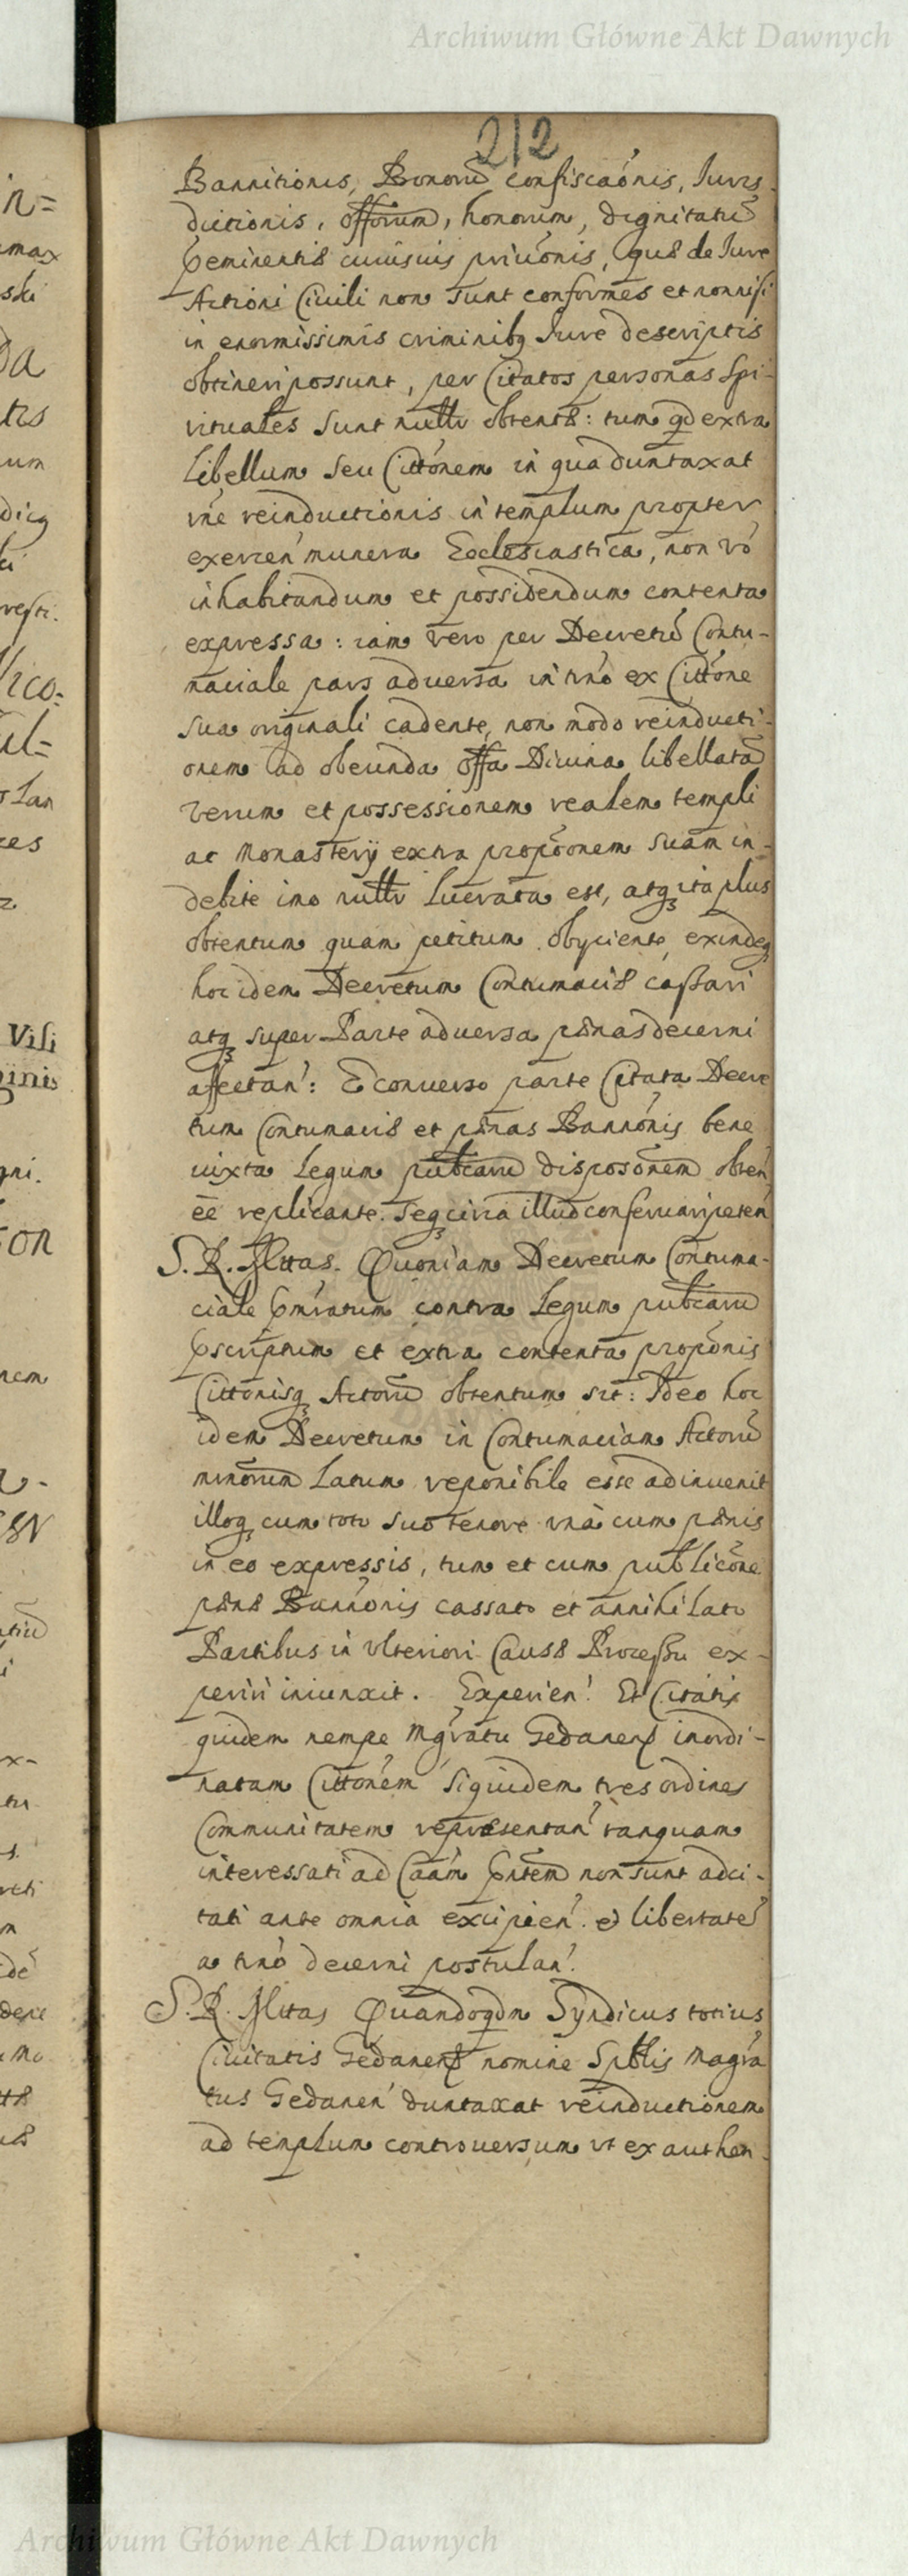 Archiwum Główne Akt Dawnych
212
Bannitionis, Bonorū confiscaónis, Juris
dictionis, offorum, honorum, dignitatū
p̄eminentiæ cuiusvis priuónis, quæ de Jure
Actioni Civili non sunt conformes et nonnisi
in enormissimis criminibq Jure descriptis
obtineri possunt, per Citatos personas Spi-
rituales sunt nullr obtentæ: tum qd extra
Libellum seu Cittónem in qua duntaxat
rne reinductionis in templum propter
exercen' munera Ecclesiastica, non vó
inhabitandum et possidendum contenta
expressa: iam vero per Decretū Contu-
maciale pars adversa in tnó ex Cittóne
sua originali cadente, non modo reinducti-
onem ad obeunda offa Divina libellatā
verum et possessionem realem templi
ac Monasterÿ extra propóonem suam in-
debite imo nullr lucrata est, atq ita plus
obtentum quam petitum obÿciente, exindeq
hoc idem Decretum Contumaciæ cassari
atq super Parte adversa pænas decerni
affectan': E converso parte Citata Decre
tum Contumaciæ et pænas Bannónis bene
iuxta Legum publcaru disposónem obten'
ēē replicante. Seq circa illud conservari peten'
S. R. Mttas. Quoniam Decretum Contuma-
ciale p̄mratum contra Legum publcaru
p̄scriptum et extra contenta propónis
Cittonisq Actorū obtentum sit: Ideo hoc
idem Decretum in Contumaciam Actorū
mnorum Latum reponibile esse adinvenit
illoq cum toto suo tenore vnà cum pænis
in eo expressis, tum et cum publicóne
pænæ Bannónis cassato et annihilato
Partibus in vlteriori Causæ Processu ex-
periri iniunxit. Experien'. Et Citatis
quidem nempe Mgratu Gedanens inordi-
natam Cittónem siquidem tres ordines
Communitatem repræsentan' tanquam
interessati ad Caam p̄ntem non sunt adci-
tati ante omnia excipien'. et libertatē
a tnó decerni postulan'.
S. R. Mttas Quandoqdm Syndicus totius
Civitatis Gedanens nomine Spblis Magra
tus Gedanen' duntaxat reinductionem
ad templum controversum vt ex authen-
Archiwum Główne Akt Dawnych